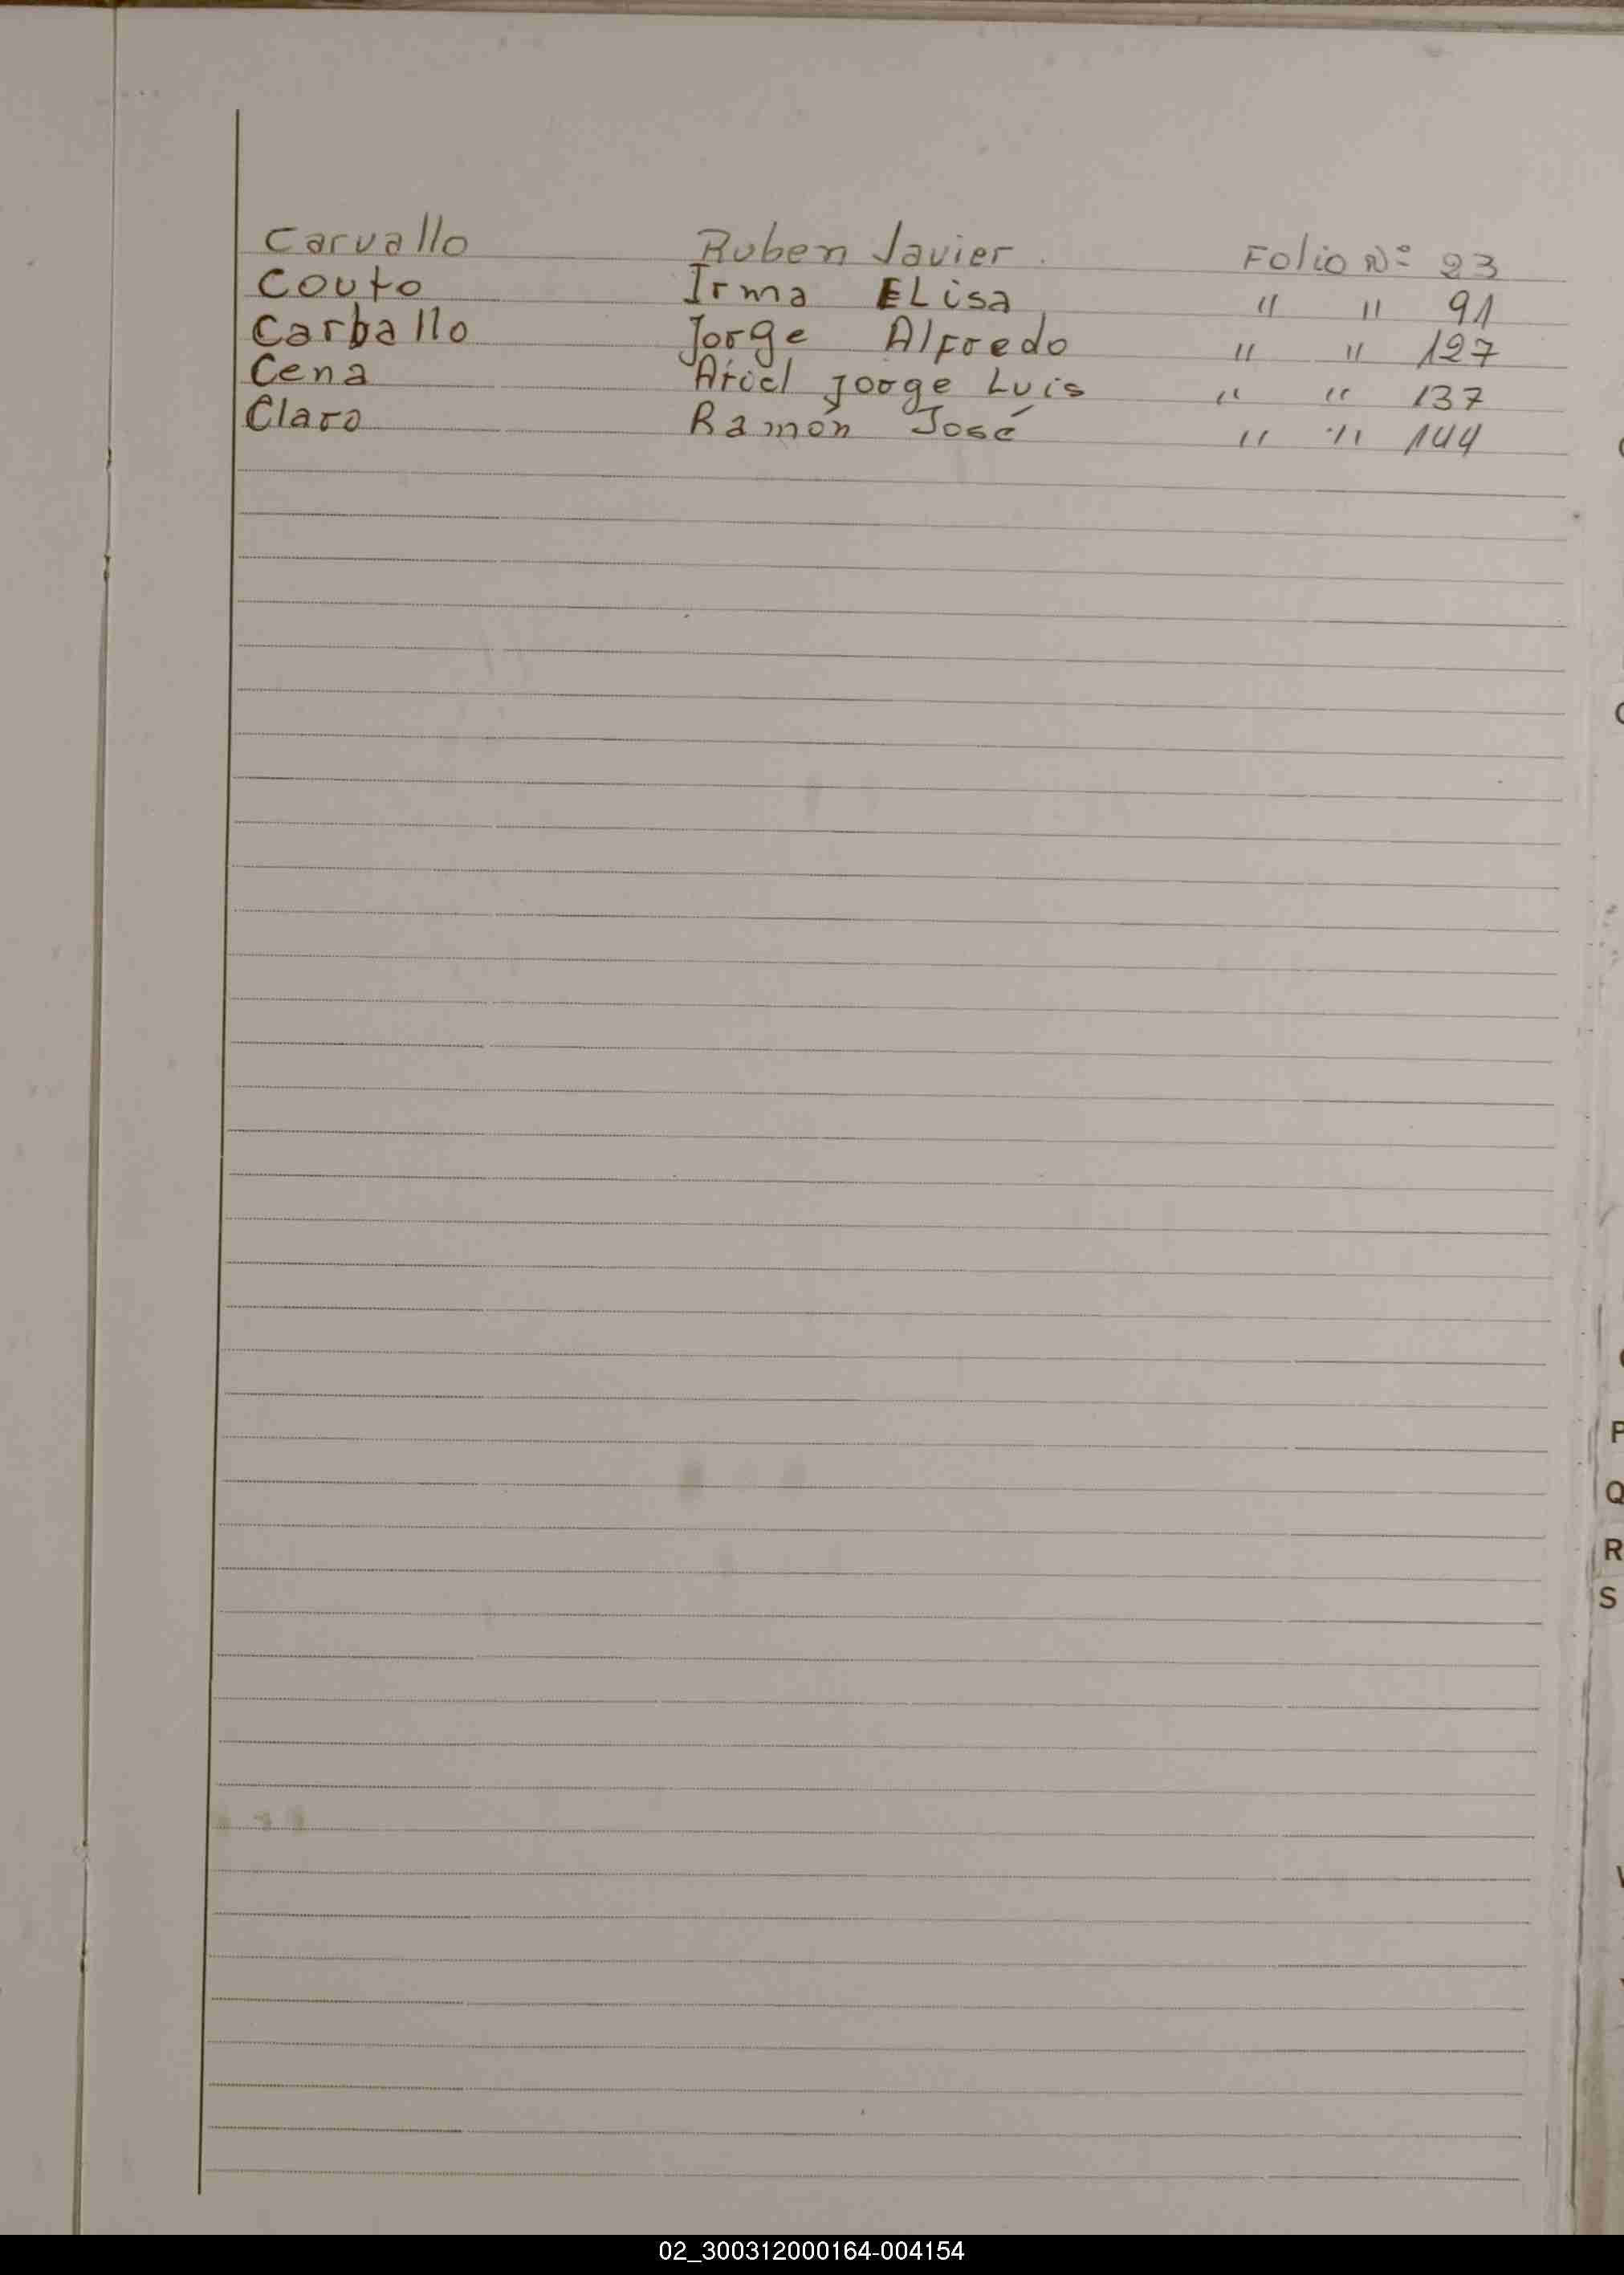 Carvallo Ruben Javier. Folio Nº 23
Couto Irma ELisa " " 91
Carballo Jorge Alfredo " " 127
Cena Ariel Jorge Luis " " 137
Claro Ramón José " " 144
P
Q
R
S
02_300312000164-004154